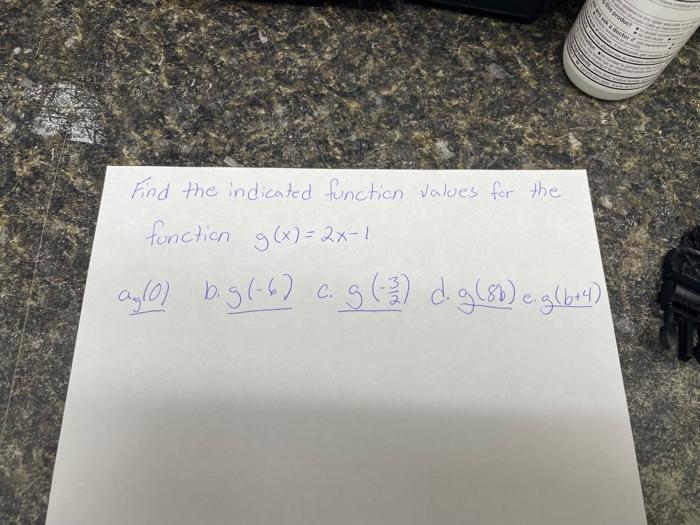 Find the indicated function values for the
function g(x) = 2x-1
a. g(0) b. g(-6) c. g(-3/2) d. g(8b) e. g(b+4)
this product?
ask a doctor